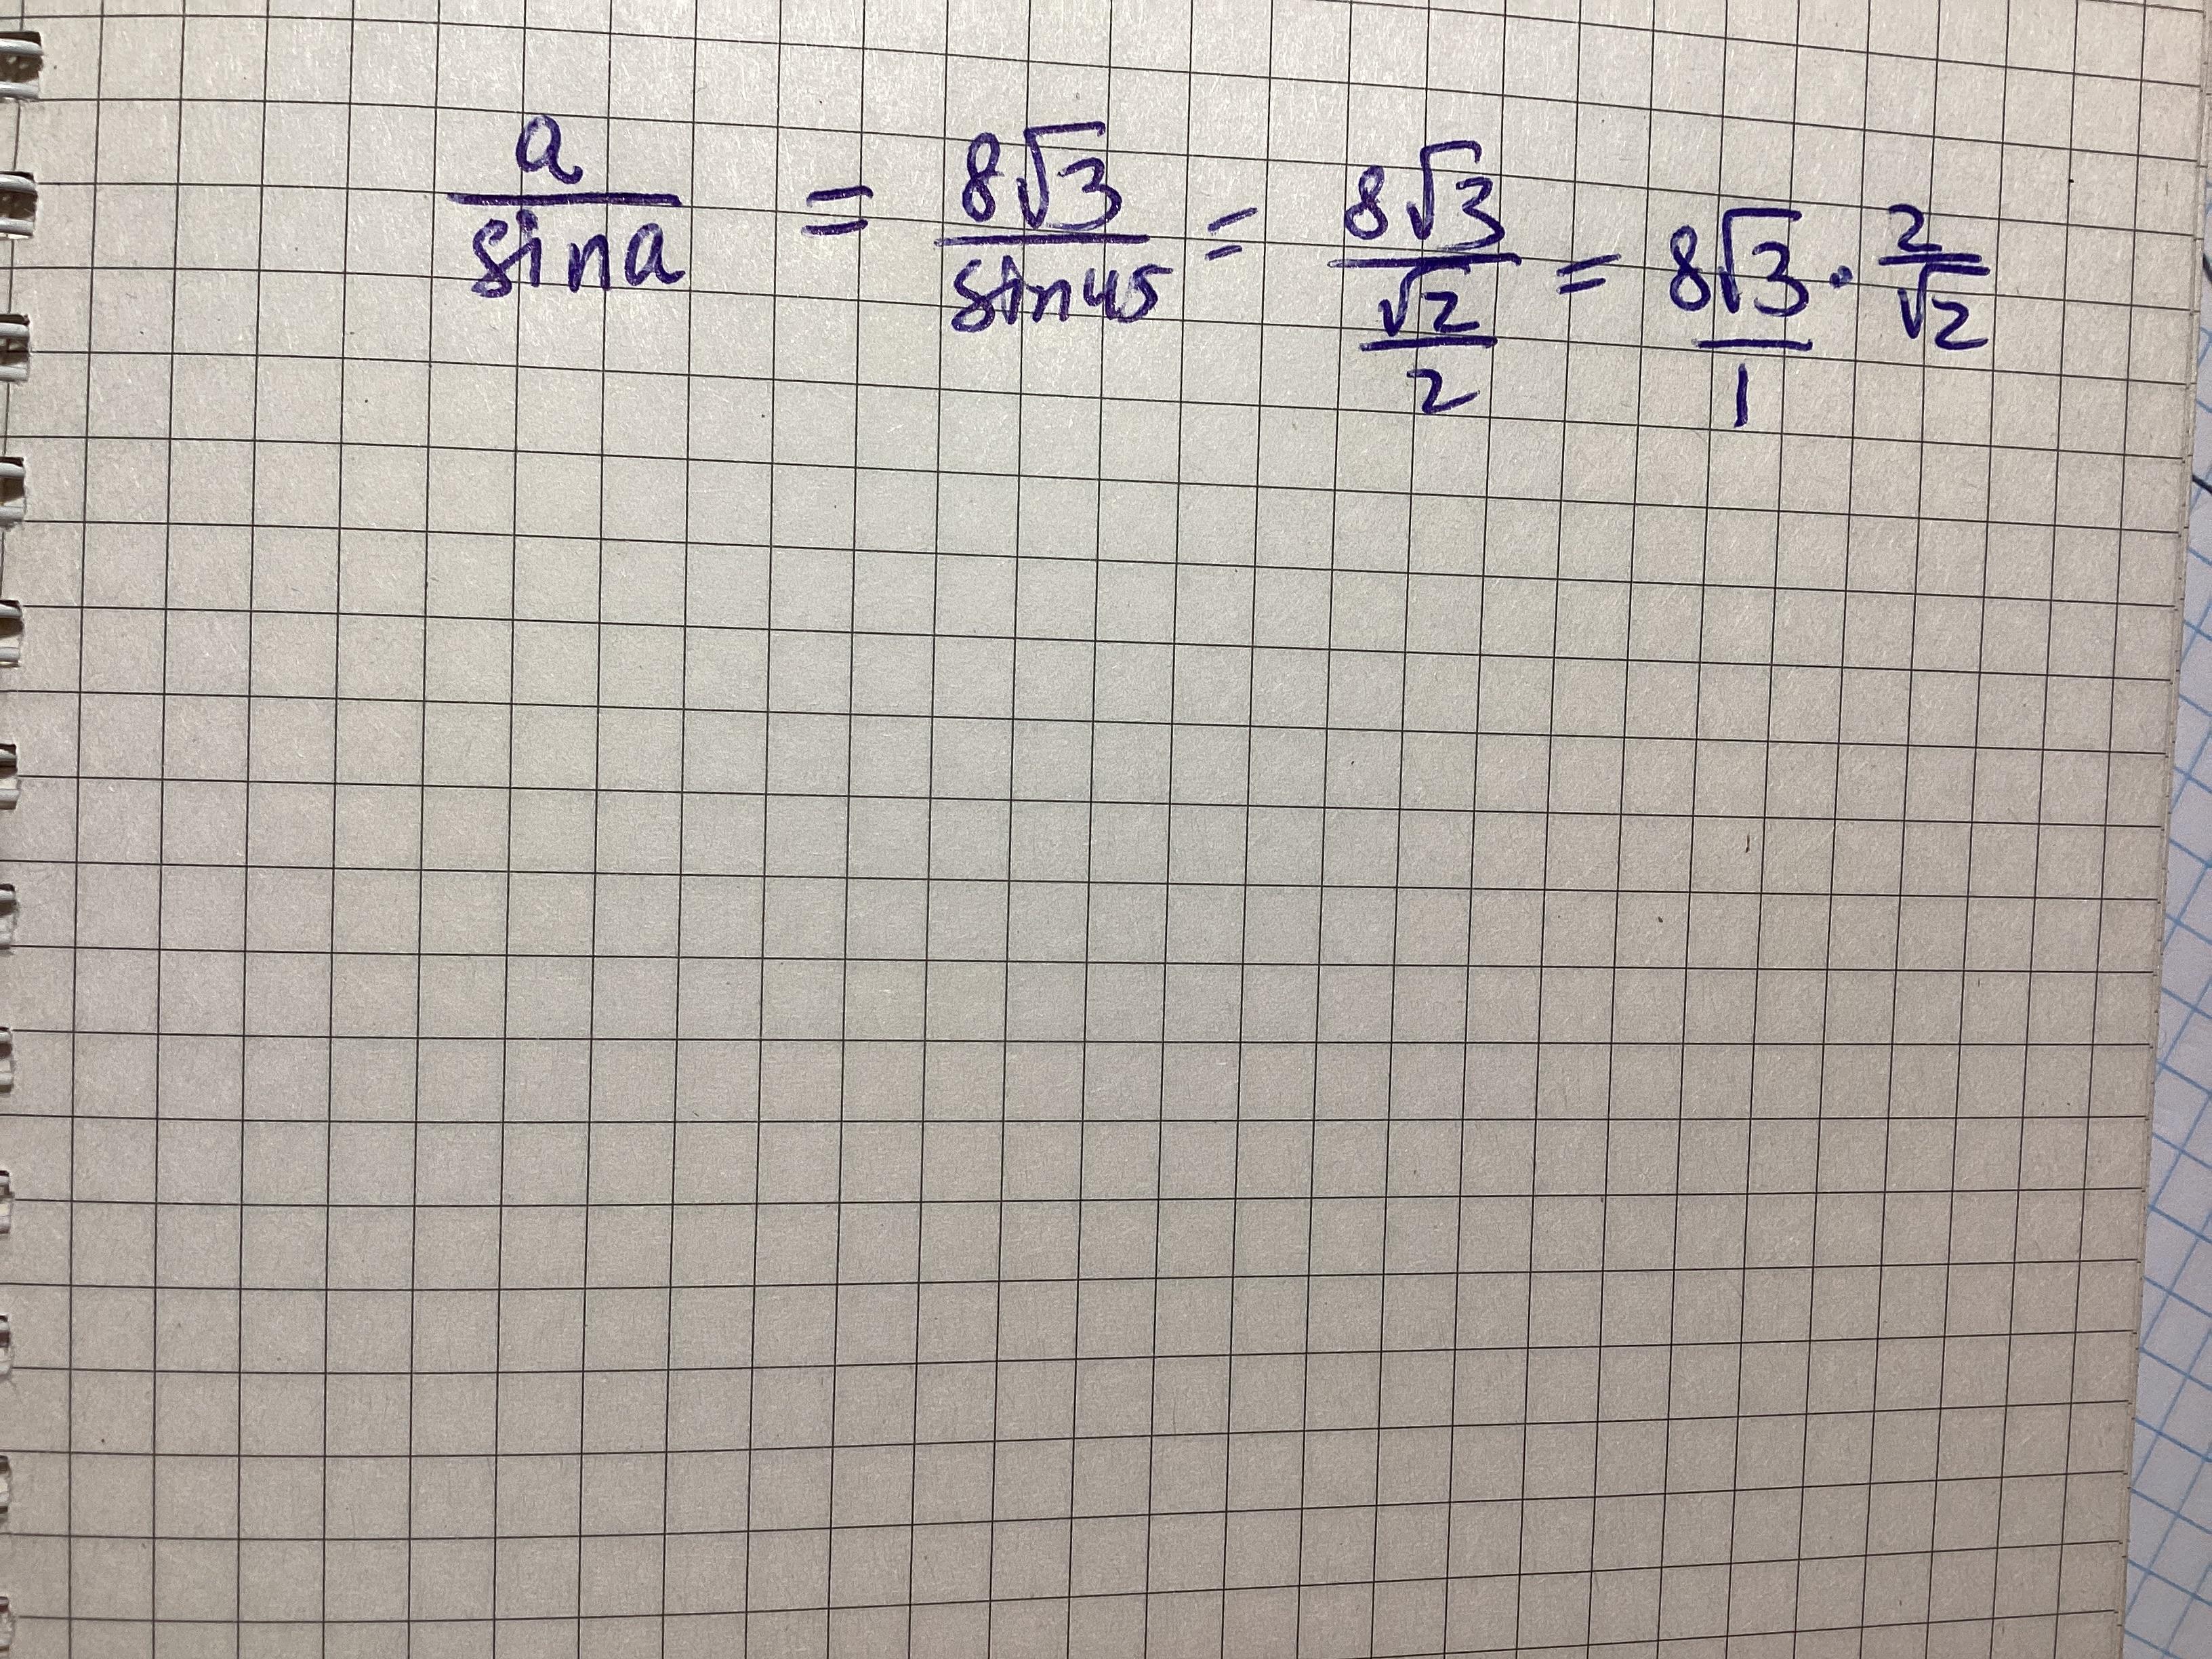 a/sina = 8√3/sin45 = 8√3/(√2/2) = 8√3/1 · 2/√2